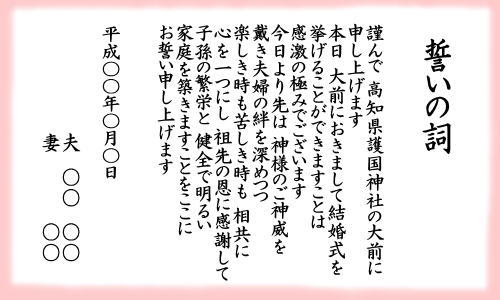 誓いの詞
謹んで 高知県護国神社の大前に
申し上げます
本日 大前におきまして結婚式を
挙げることができますことは
感激の極みでございます
今日より先は 神様のご神威を
戴き夫婦の絆を深めつつ
楽しき時も苦しき時も 相共に
心を一つにし 祖先の恩に感謝して
子孫の繁栄と 健全で明るい
家庭を築きますことをここに
お誓い申し上げます
平成〇〇年〇月〇日
夫 〇〇 〇〇
妻 〇〇